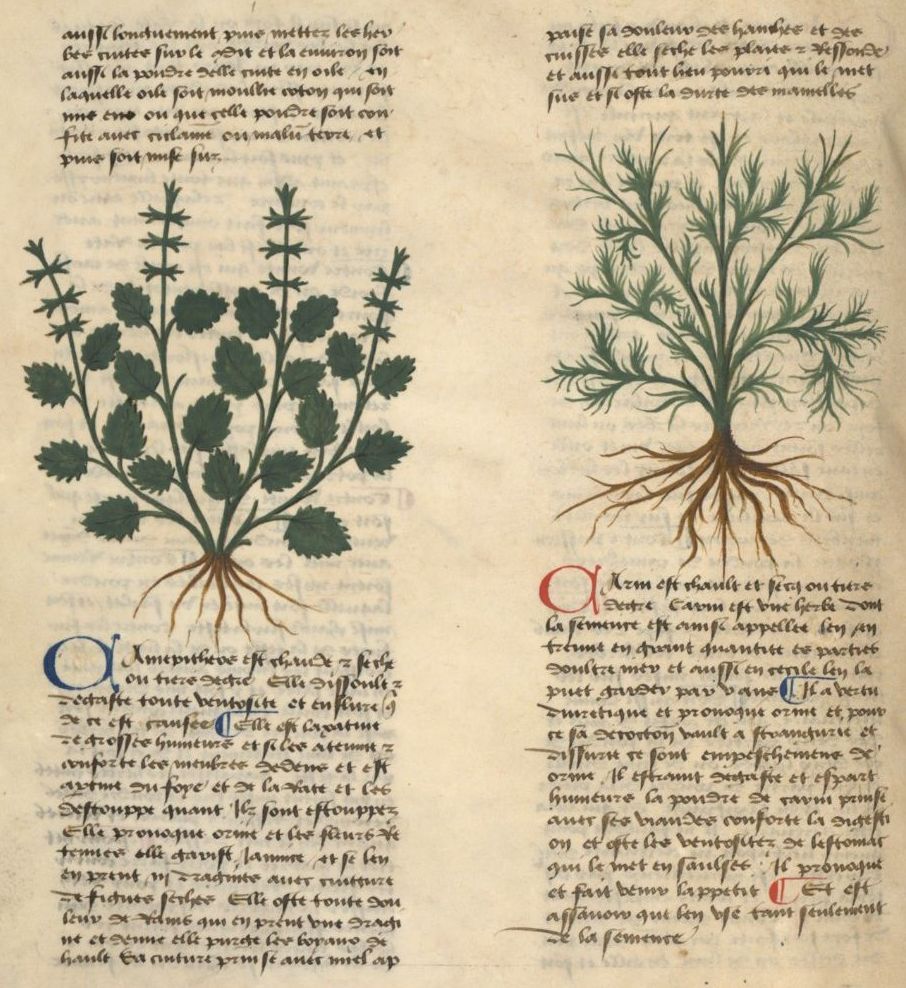 aussi longuement puis mettez les her
bes cuites sur le dit et la environ soit
aussi la poudre delle cuite en oile / en
laquelle oile soit moullie coton qui soit
mis ens ou que celle poudre soit con
fite auec ciclame ou malu terre / et
puis soit mise sur
Camepitheos est chaude et seche
ou tiers degre Elle dissoult et
degaste toute ventosite et enflure
de ce est causee Elle est laxatiue
de grosses humeurs et si les atenue et
conforte les menbres dedens et est
aperitiue du foye et de la rate et les
destouppe quant Ilz sont estouppez
Elle prouoque orine et les fleurs re
tenues elle garist Jaunice / et se len
en prent iij dragmes auec cuitture
de figues seches Elle oste toute dou
leur de Rains qui en prent vne drag
me et demie elle purge les boyaux de
hault La cuiture prinse auec miel ap
paise sa douleur des hanches et des
cuisses elle seche les plaies et Ressoude
et aussi tout lieu pourri qui le met
sus et si oste la durte des mamelles
Carui est chault et secq ou tiers
degre Carui est vne herbe dont
la semence est ainsi appellee len en
treuue en grant quantite es parties
doultre mer et aussi en cecile len la
puet garder par v ans Il a vertu
diuretique et prouoque orine et pour
ce sa decoction vault a strangurie et
dissurie ce sont empeschemens de
orine / Il estraint degaste et espart
humeurs la poudre de carui prinse
auec ses viandes conforte la digesti
on et oste les ventositez de lestomac
qui le met en saulses Il prouoque
et fait venir lappetit Et est
assauoir que len vse tant seulement
de la semence